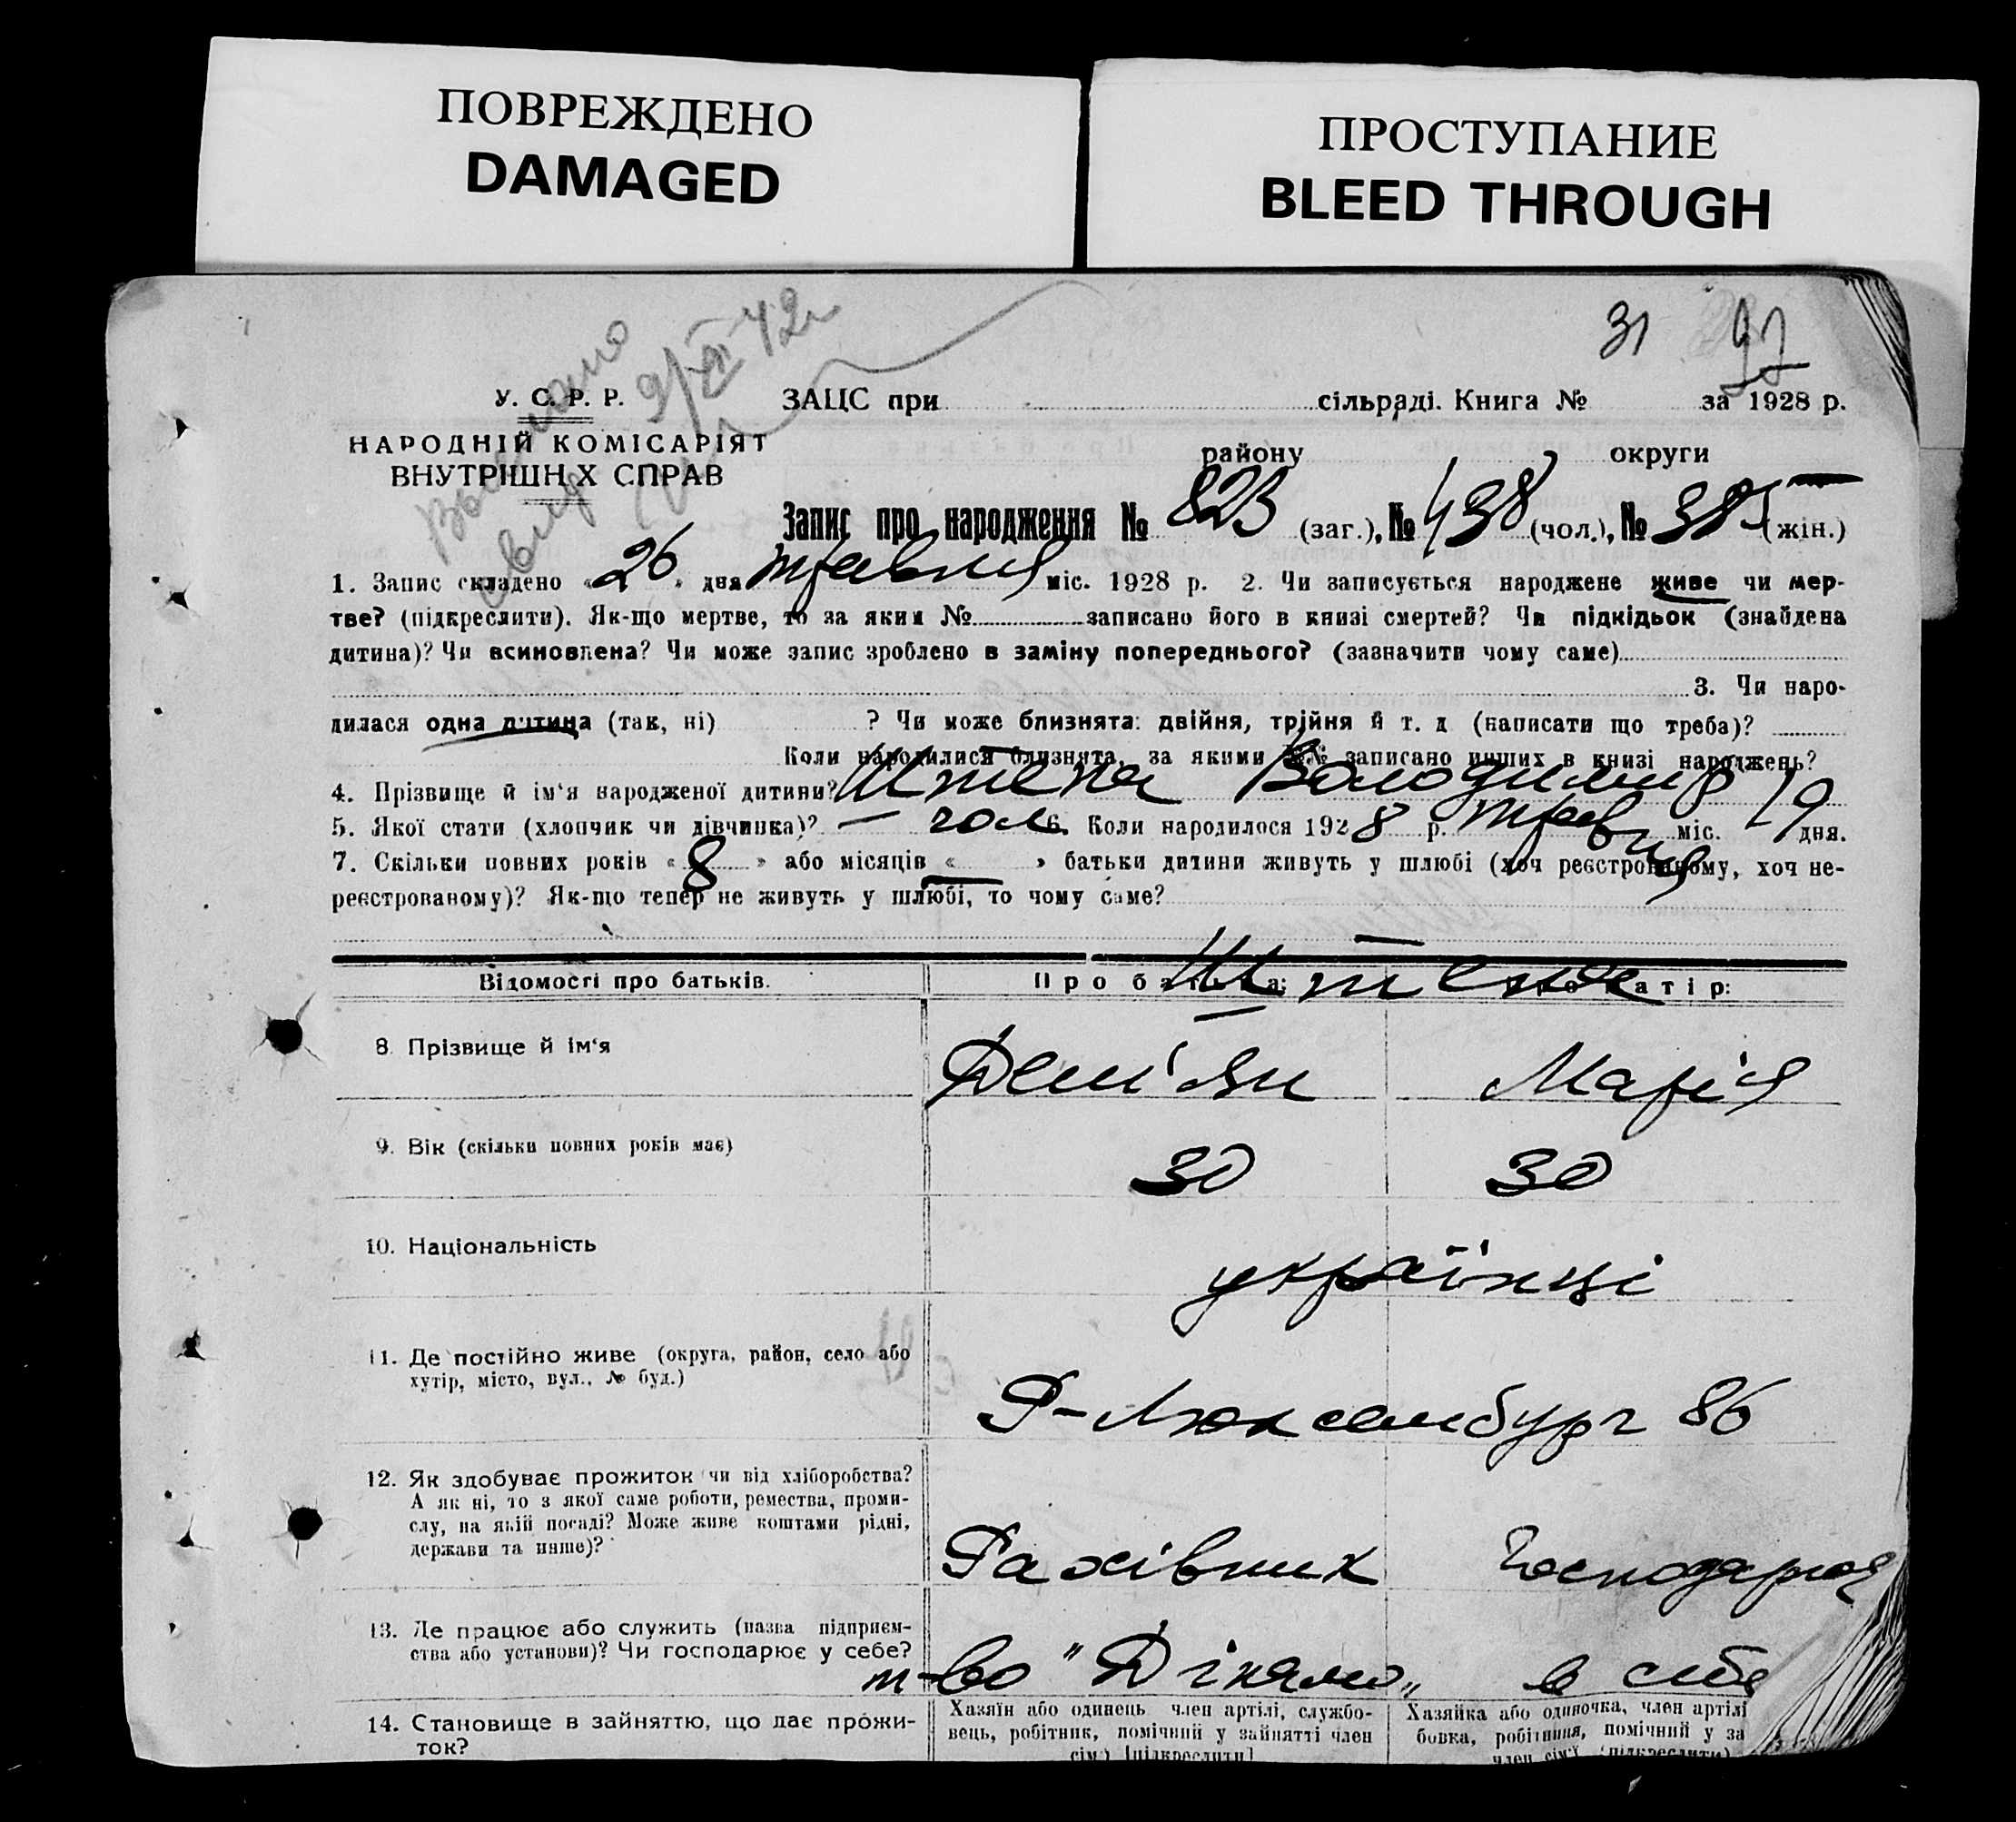 ПОВРЕЖДЕНО
DAMAGED
ПРОСТУПАНИЕ
BLEED THROUGH
31 97
9/XI 42
У. С. Р. Р.
ЗАЦС при сільраді. Книга № за 1928 р.
НАРОДНІЙ КОМІСАРІЯТ
ВНУТРІШН Х СПРАВ
району округи
Запис про народження № 823 (заг.), № 438 (чол.), № 385 (жін.)
1. Запис складено « 26 » дня травня міс. 1928 р. 2. Чи записується народжене живе чи мер-
тве? (підкреслити). Як-що мертве, то за яким № записано його в книзі смертей? Чи підкідьок (знайдена
дитина)? Чи всиновлена? Чи може запис зроблено в заміну попереднього? (зазначити чому саме)
3. Чи наро-
дилася одна дитина (так, ні) ? Чи може близнята: двійня, трійня й т. д. (написати що треба)?
Коли народилися близнята, за якими №№ записано инших в книзі народжень?
4. Прізвище й ім‘я народженої дитини? Штепа Володимир
5. Якої стати (хлопчик чи дівчинка)? — чол 6. Коли народилося 1928 р. травня міс. 19 дня.
7. Скільки повних років « 8 » або місяців « » батьки дитини живуть у шлюбі (хоч реєстрованому, хоч не-
реєстрованому)? Як-що тепер не живуть у шлюбі, то чому саме?
Відомості про батьків. Про батька: Про матір:
Штепа
8. Прізвище й ім‘я Дем'ян Марія
9. Вік (скільки повних років має) 30 30
10. Національність українці
11. Де постійно живе (округа, район, село або
хутір, місто, вул., № буд.)
Р-Люксембург 86
12. Як здобуває прожиток чи від хліборобства?
А як ні, то з якої саме роботи, ремества, проми-
слу, на якій посаді? Може живе коштами рідні,
держави та инше)?
Рахівник Господарює
13. Де працює або служить (назва підприєм-
ства або установи)? Чи господарює у себе?
т-во "Дінамо" в себе
14. Становище в зайняттю, що дає прожи-
ток?
Хазяїн або одинець член артілі, службо-
вець, робітник, помічний у зайнятті член
сім'ї [підкреслити]
Хазяйка або одиночка, член артілі
бовка, робітниця, помічний у за
член сім'ї (підкреслити)